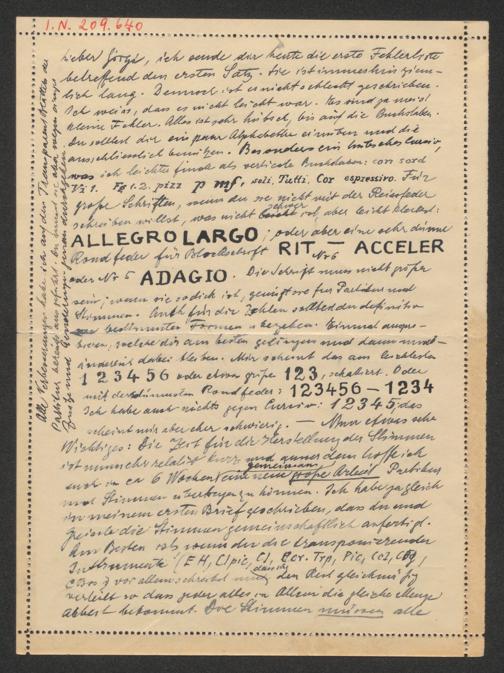 I.N. 209.640
Lieber Görgi, ich sende dir heute die erste Fehlerliste
betreffend den ersten Satz. Sie ist immerhin ziem-
lich lang. Dennoch ist es nicht schlecht geschrieben.
Ich weiss, dass es nicht leicht war. Es sind ja meist
kleine Fehler. Alles ist sehr hübsch, bis auf die Buchstaben.
Du solltest dir ein paar Alphabette einüben und die
ausschliesslich benützen. Besonders ein hübsches Cursiv,
was ich leichter finde als verticale Buchstaben: con sord
pizz p mf, soli, Tutti, Cor espressivo. Für
große Schriften, wenn du sie nicht mit der Reissfeder
schreiben willst, was nicht schwer ist, aber leicht kleckst:
ALLEGRO LARGO, oder aber eine sehr dünne
Rondfeder für Blockschrift RIT. — ACCELER
oder No 5 ADAGIO. Die Schrift muss nicht größer
sein; wenn sie so dick ist, genügt sie für Partitur und
Stimmen. Auch für die Zahlen solltest du definitiv
bestimmten Formen Einmal auspro-
bieren, welche dir am besten gelingen und dann unab-
änderlich dabei bleiben. Mir scheint das am leichtesten
1 2 3 4 5 6 oder etwas größer 123, schattiert. Oder
mit der dünnsten Rondfeder: 123456 — 1234
Ich habe auch nichts gegen Cursiv: 1 2 3 4 5, das
scheint mir aber schwierig. — Nun etwas sehr
Wichtiges: Die Zeit für die Herstellung der Stimmen
ist nun sehr relativ kurz und ausserdem hoffe ich
euch in ca 6 Wochen gemeinsam eine neue große Arbeit Partitur
und Stimmen übertragen zu können. Ich habe ja gleich
in meinem ersten Brief geschrieben, dass du und
die Stimmen gemeinschaftlich anfertigt.
Am Besten ist wenn du die transponierenden
Instrumente (EH, Clpic, Cl, Cor. Trp, Pic, Cel, CFg,
CBss) vor allem schreibst und den Rest gleichmäßig
verteilt so dass jeder alles in Allem die gleiche Menge
Arbeit bekommt. Die Stimmen müssen alle